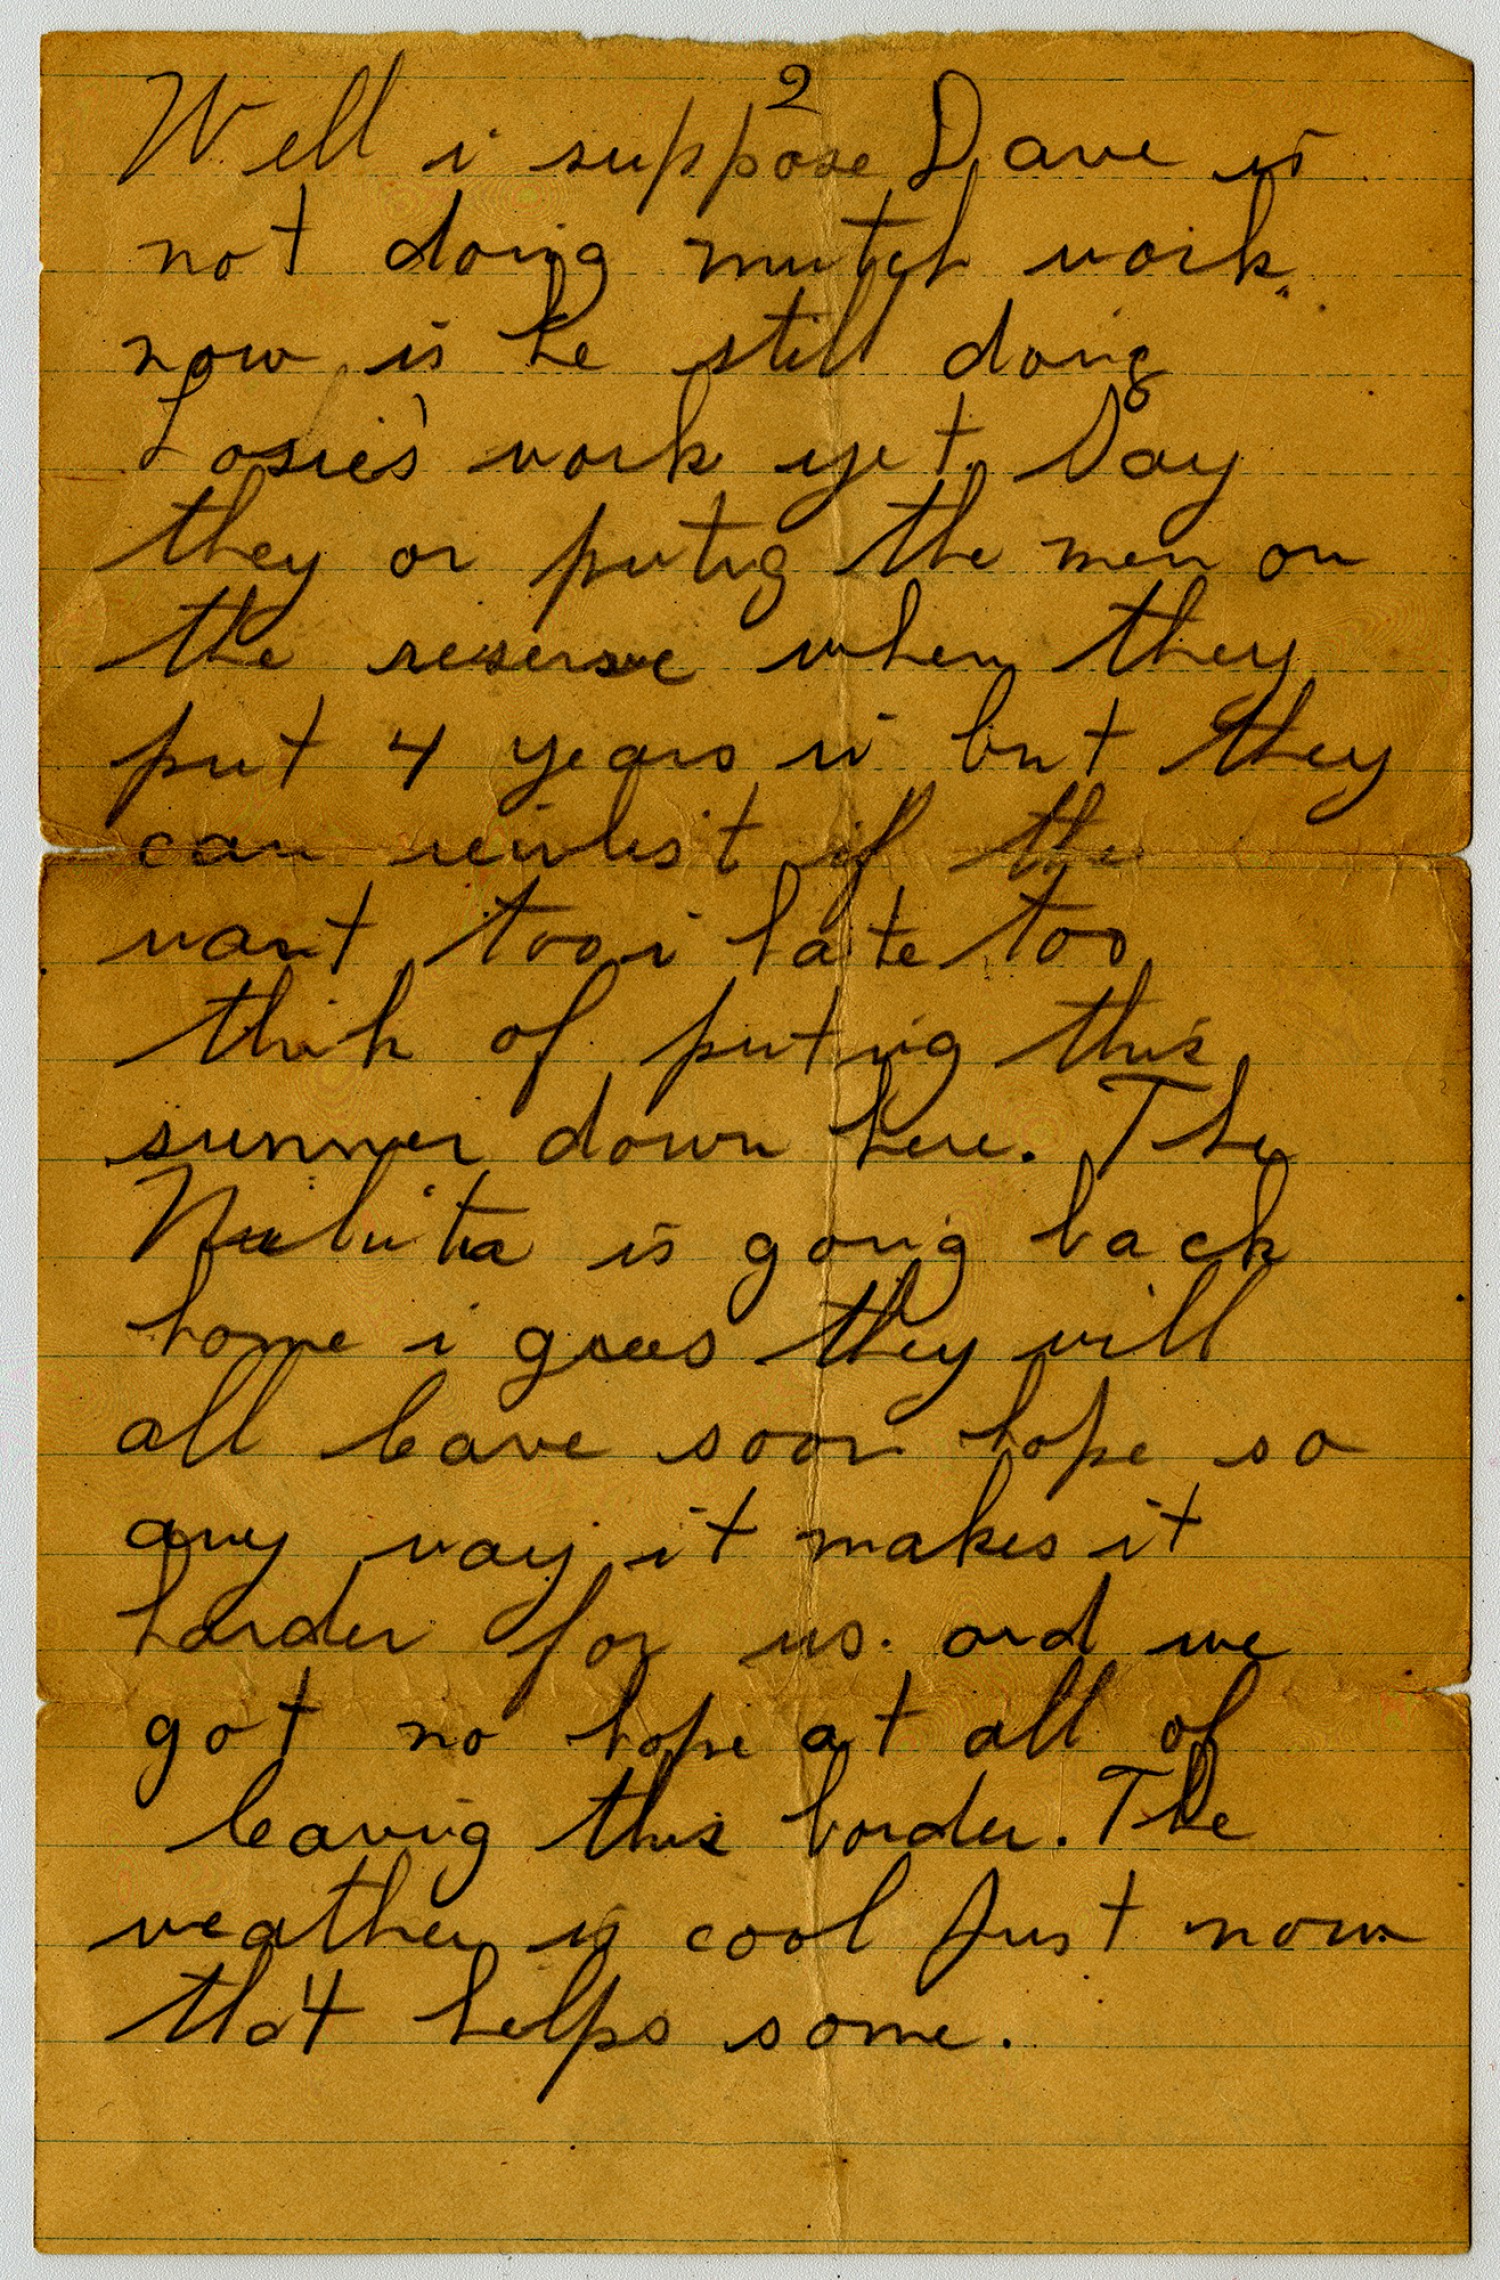 2
Well i suppose Dave is
not doing mutch work
now is he still doing
Losie's work yet. Say
they or puting the men on
the reserve when they
put 4 years in but they
can reinlist if the
want too i hate too
think of puting this
summer down here. The
Miluita is going back
home i guees they will
all leave soon hope so
any way it makes it
harder for us. and we
got no hope at all of
leaving this border. The
weather is cool Just now
that helps some.